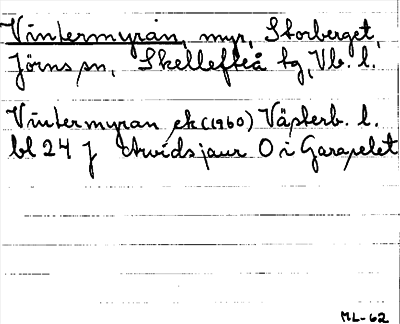 Vintermyran, myr, Storberget,
Jörns sn, Skellefteå tg, Vb. l.
Vintermyran ek (1960) Västerb. l.
bl 24 J Arvidsjaur O i Garaselet
ML-62